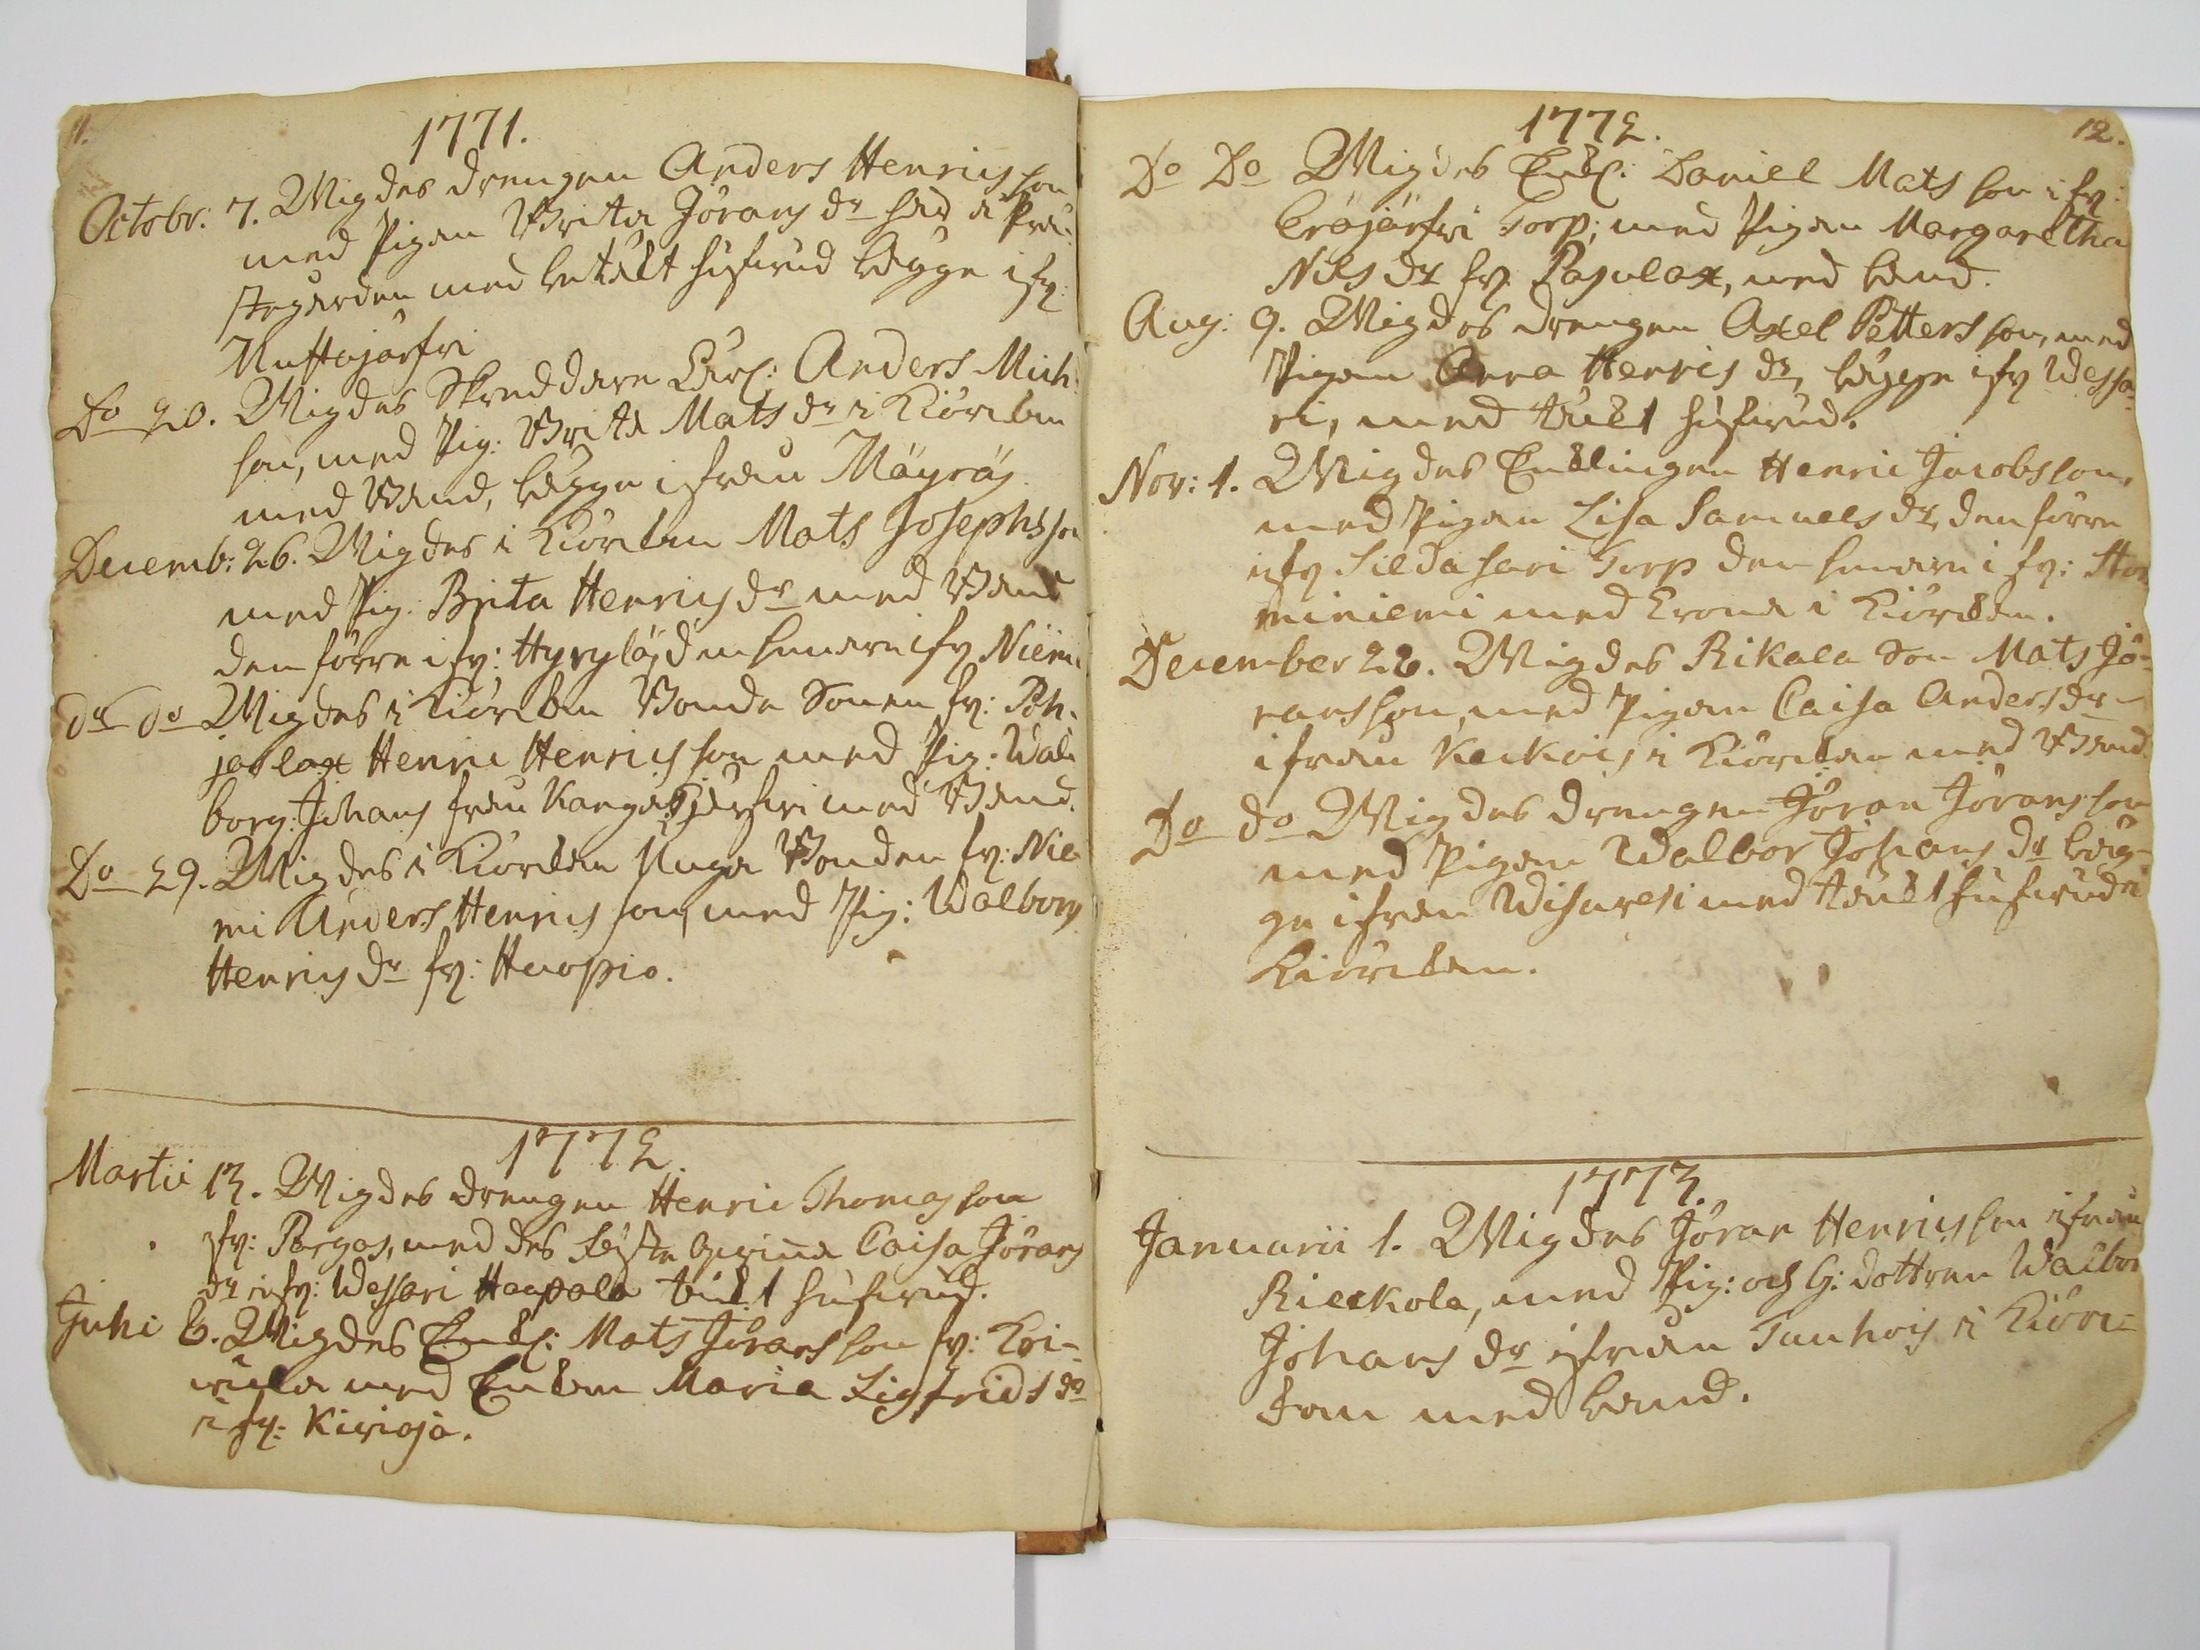 11.
1771.
Octobr: 7. Wigdes drengen Anders Henricsson
med Pigan Brita Jörans dr här i Prä-
stegården med betalt hufwud begge ifr:
Mustajärfwi
Do 20. Wigdes Skreddare Lärl: Anders Mich:
son, med Pig: Brita Mats dr i Kiörckan
med Band, begge ifrån Mäyräj.
Decemb: 26. Wigdes i Kiörckan Mats Josephsson
med Pig: Brita Henrics dr med Band
den förre ifr: Hyryläj den senare ifr Niemi
do do Wigdes i Kiörckan Bonde Sonen fr: Poh-
jaslax Henric Henricsson med Pig: Wal-
borg: Johans från Kangasjärfwi med Band.
Do 29. Wigdes i Kiörckan Unga Bonden fr: Nie-
mi Anders Henricsson, med Pig: Walborg
Henrics dr fr: Huopio.
1772.
Martii 13. Wigdes drengen Henric Thomasson
ifr: Pargas, med des Fäste qwinna Caisa Jörans
dr ifr: Wessari Haapala täckt hufwud.
Juhi 6. Wigdes Enkl: Mats Jöransson fr: Kri-
wula med Enkan Maria Sigfrids dr
ifr: Kirioja.
12.
1772.
Do Do Wigdes Enkl: Daniel Matsson ifr:
Eräjärfwi Torp; med Pigan Margaretha
Nils dr fr. Papulax, med band.
Aug: 9. Wigdes drengen Axel Pettersson, med
Pigan Anna Henrics dr, begge ifr Wessa-
ri, med täckt hufwud.
Nov: 1. Wigdes Enklingen Henric Jacobsson,
med Pigan Lisa Samuels dr, den förre
ifr Sildasari Torp den senare ifr: Stor
miniemi med Krona i Kiörckan.
December 26. Wigdes Rikala Son Mats Jö-
ransson, med Pigan Caisa Anders dr
ifrån Keckois i Kiörckan med Band.
Do do Wigdes drengen Jöran Jöransson
med Pigan Walbor Johans dr beg-
ge ifrån Wisuresi med täckt hufwud i
Kiörckan.
1773.
Januarii 1. Wigdes Jöran Henricsson ifrån
Rieckola, med Pig: och G: dottren Walbor
Johans dr ifrån Tanhois i Kiörc-
kan med band.